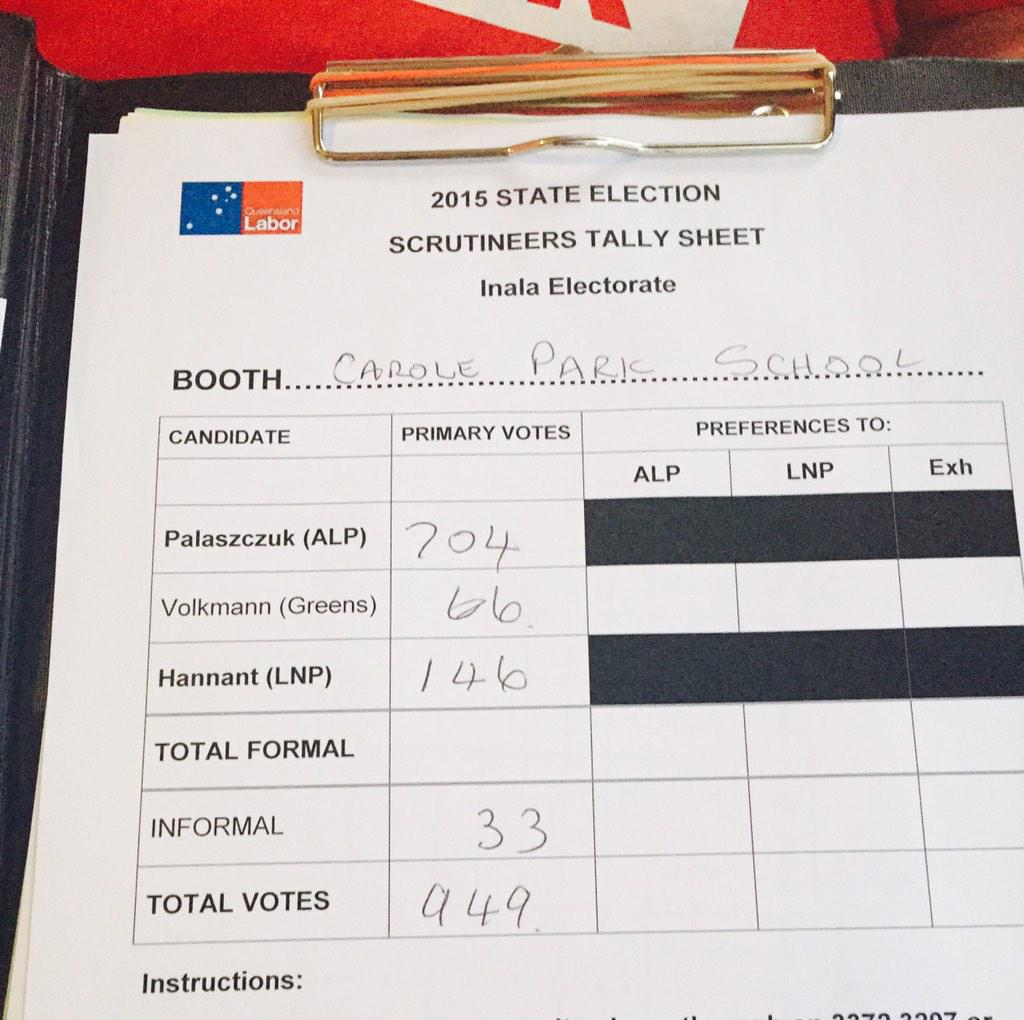 Queensland
Labor
2015 STATE ELECTION
SCRUTINEERS TALLY SHEET
Inala Electorate
BOOTH.... CAROLE PARK SCHOOL
CANDIDATE PRIMARY VOTES PREFERENCES TO:
ALP LNP Exh
Palaszczuk (ALP) 704
Volkmann (Greens) 66.
Hannant (LNP) 146
TOTAL FORMAL
INFORMAL 33
TOTAL VOTES 949.
Instructions: